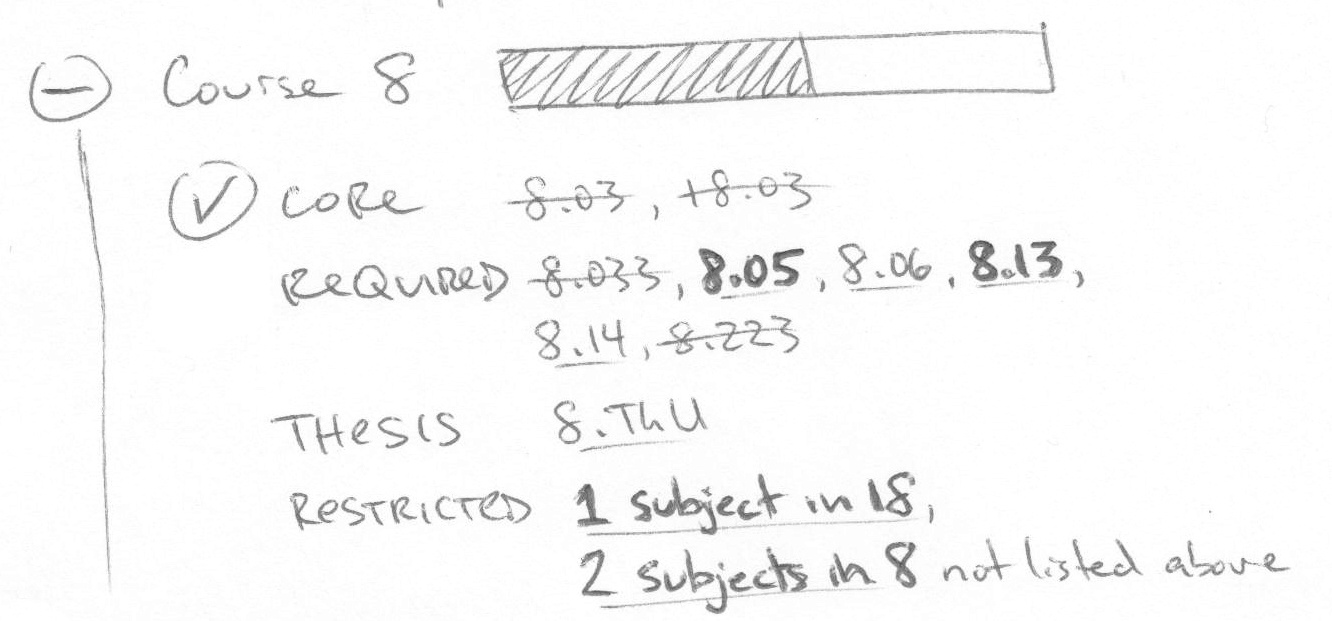 Course 8
CORE 8.03, +8.03
REQUIRED 8.033, 8.05, 8.06, 8.13,
8.14, 8.223
THESIS 8.ThU
RESTRICTED 1 subject in 18,
2 subjects in 8 not listed above